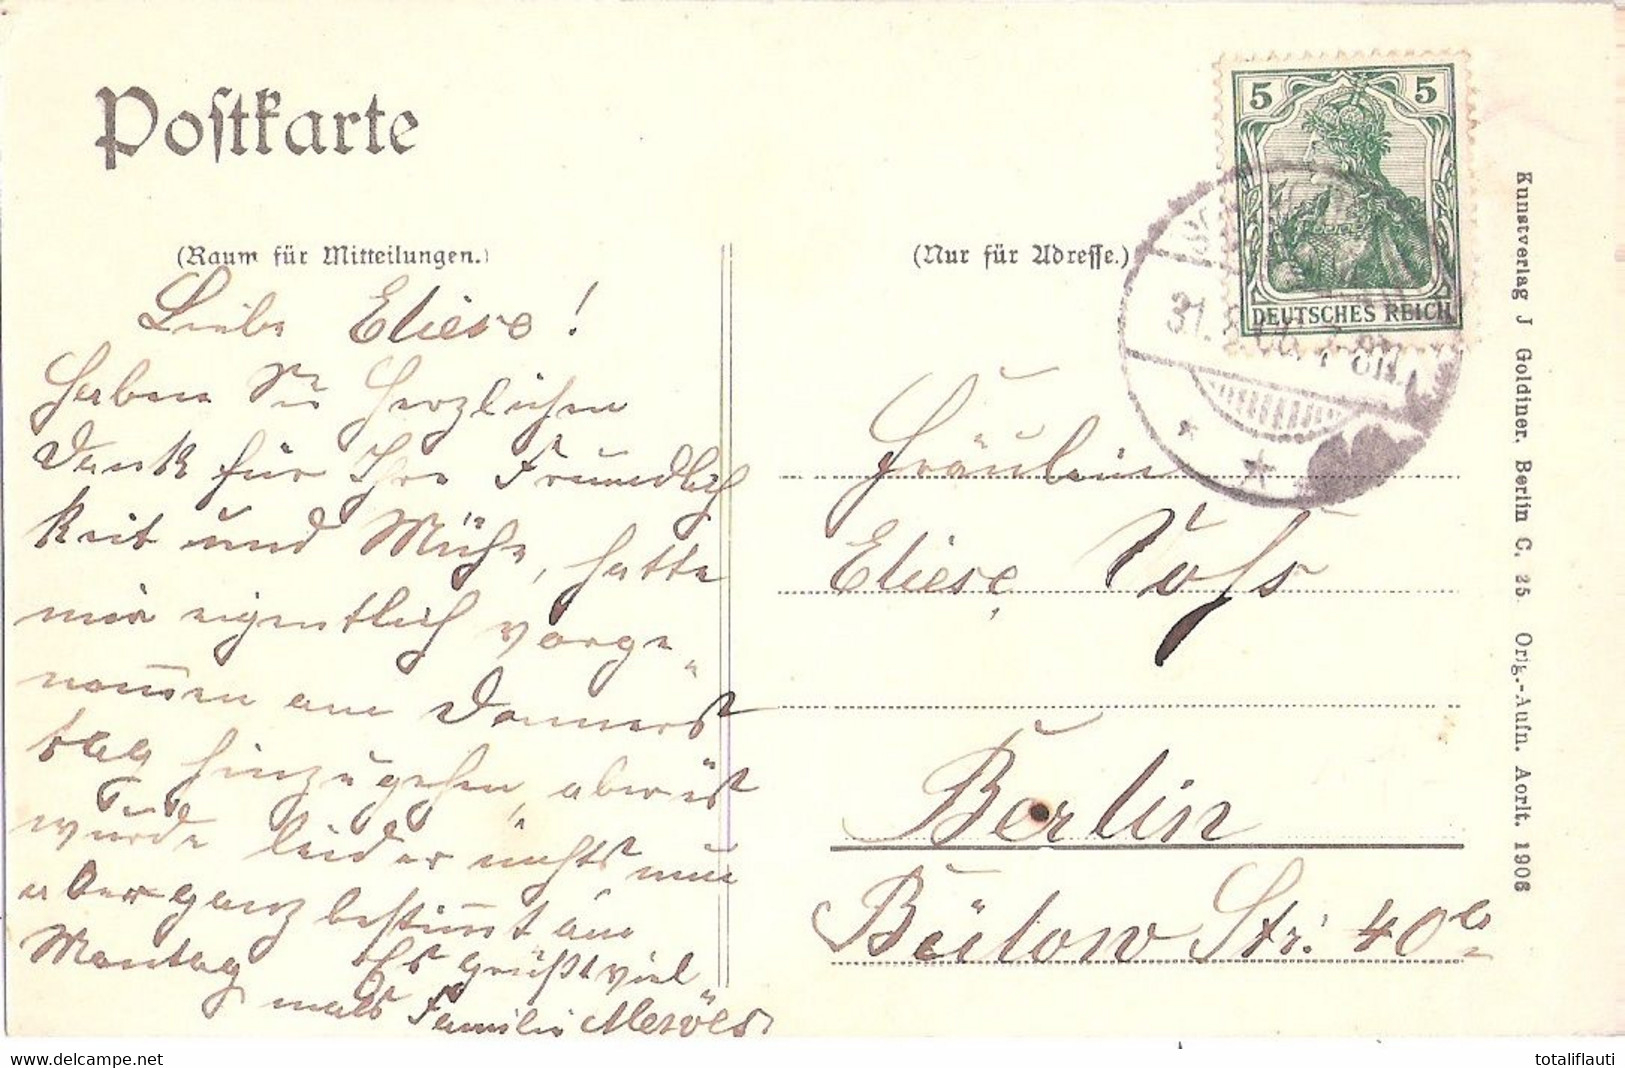 Postkarte
(Raum für Mitteilungen.)
Liebe Eliese!
Haben Sie herzlichen
Dank für Ihre Freundlich
keit und Mühe, hatte
mir eigentlich vorge"
nom̄en am Donners
tag hinzugehen, aber es
wurde leider nichts nun
aber ganz bestim̄t am
Montag Es grüßt viel"
mals Familie
(Nur für Adresse.)
5 5
DEUTSCHES REICH
31.
Fräulein
Eliese Voss
Berlin
Bülow Str: 40
Kunstverlag J Goldiner, Berlin C. 25. Orig.-Aufn. Aorlt. 1906
www.delcampe.net
totaliflauti